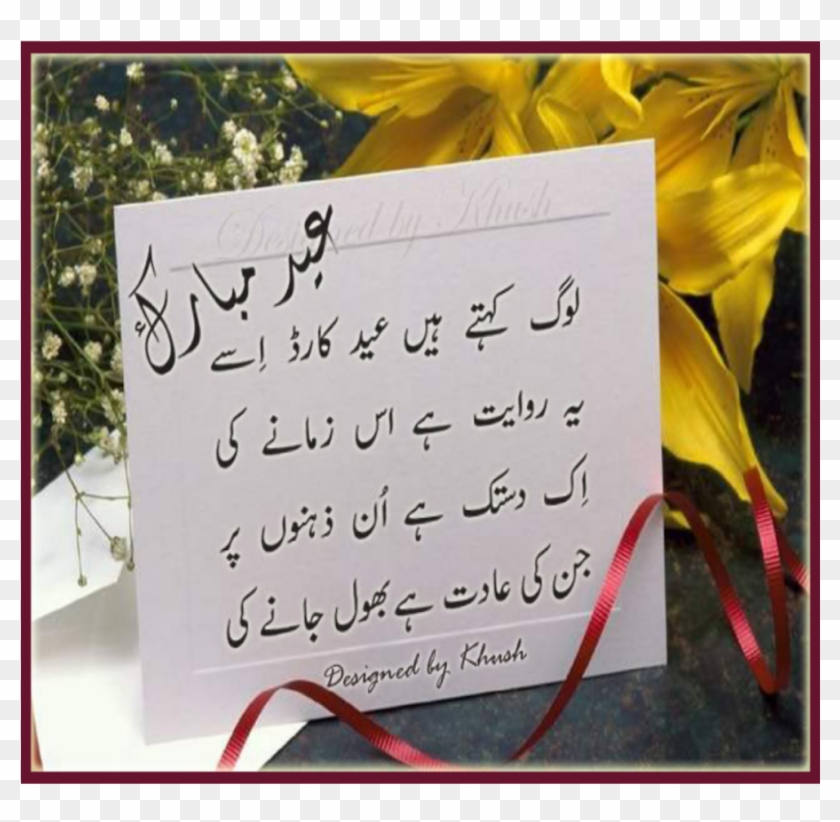 Designed by Khush
عید مبارک
لوگ کہتے ہیں عید کارڈ اِسے
یہ روایت ہے اس زمانے کی
اِک دستک ہے اُن ذہنوں پر
جن کی عادت ہے بھول جانے کی
Designed by Khush